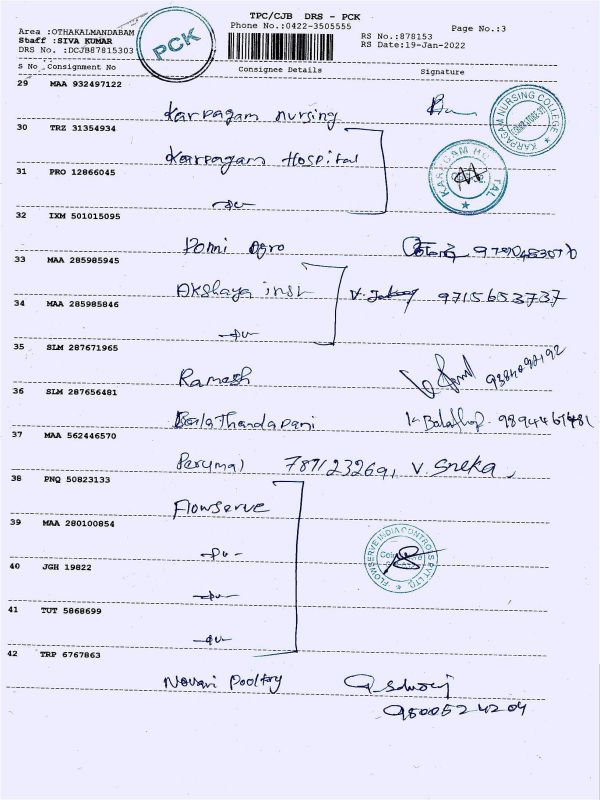 TPC/CJB DRS - PCK
Area :OTHAKALMANDABAM
Phone No.:0422-3505555
Page No.:3
Staff :SIVA KUMAR
RS No.:878153
DRS No. :DCJB87815303
RS Date:19-Jan-2022
PCK
S No Consignment No Consignee Details Signature
29 MAA 932497122
Karpagam nursing
KARPAGAM NURSING COLLEGE
30 TRZ 31354934
Karpagam Hospital
31 PRO 12866045
-do-
32 IXM 501015095
Ponni Agro
33 MAA 285985945
Akshaya inst 9715653737
34 MAA 285985846
-do-
35 SLM 287671965
Ramesh
36 SLM 287656481
Balathandapani
37 MAA 562446570
Perumal 7871232691 V. Sneka
38 PNQ 50823133
Flowserve
39 MAA 280100854
-do-
FLOWSERVE INDIA CONTROLS PVT LTD
40 JGH 19822
-do-
41 TUT 5868699
-do-
42 TRP 6767863
Novari Poultry
9500524204